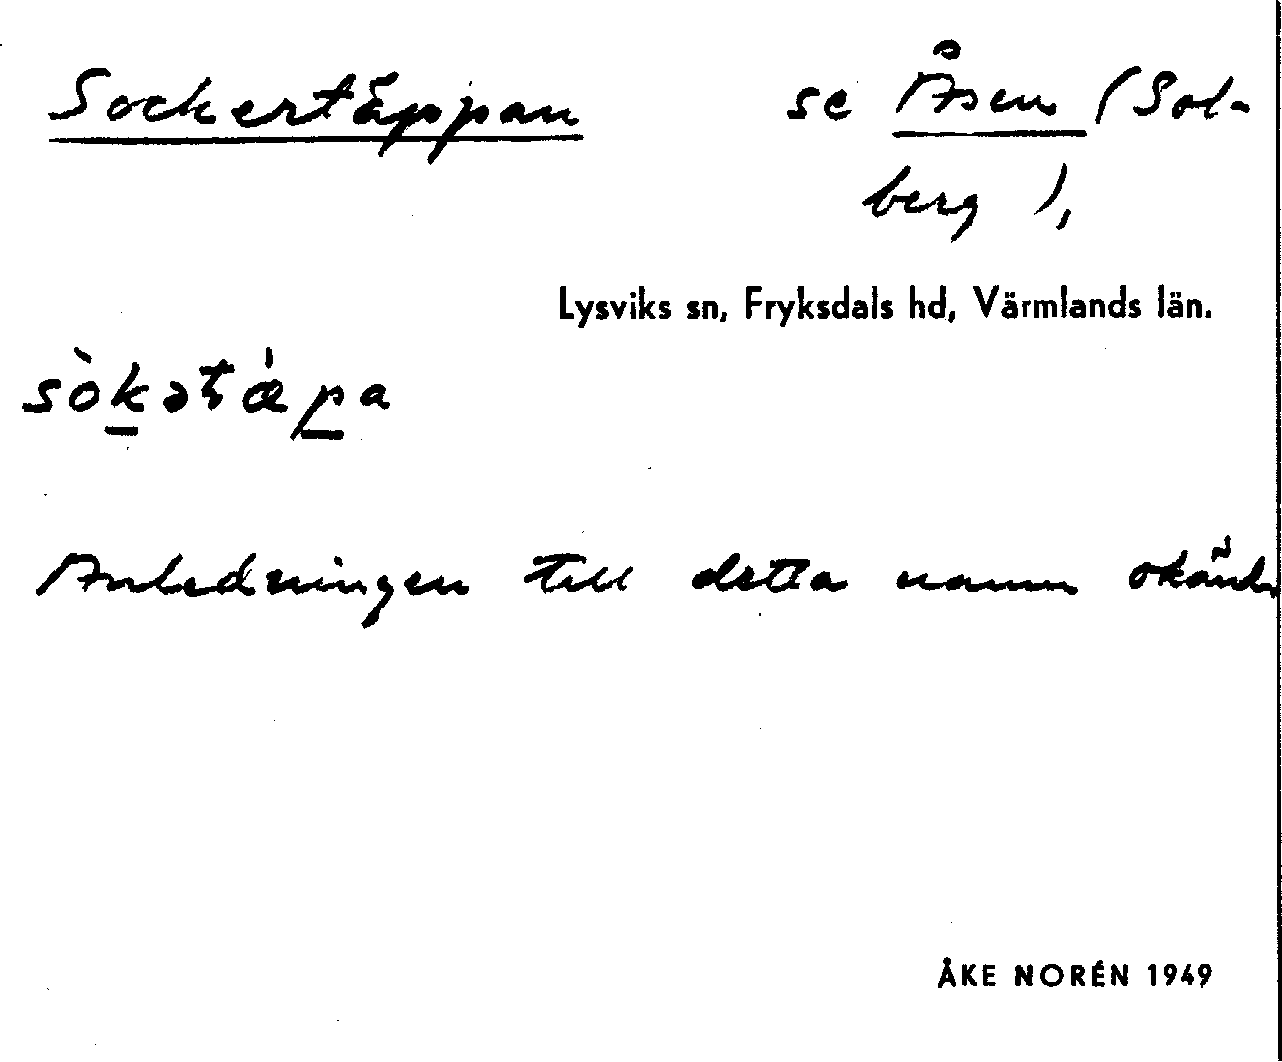 Sockertäppan se Åsen (Sol-
berg),
Lysviks sn, Fryksdals hd, Värmlands län.
sòkətǽpa
Anledningen till detta namn okänd.
ÅKE NORÉN 1949